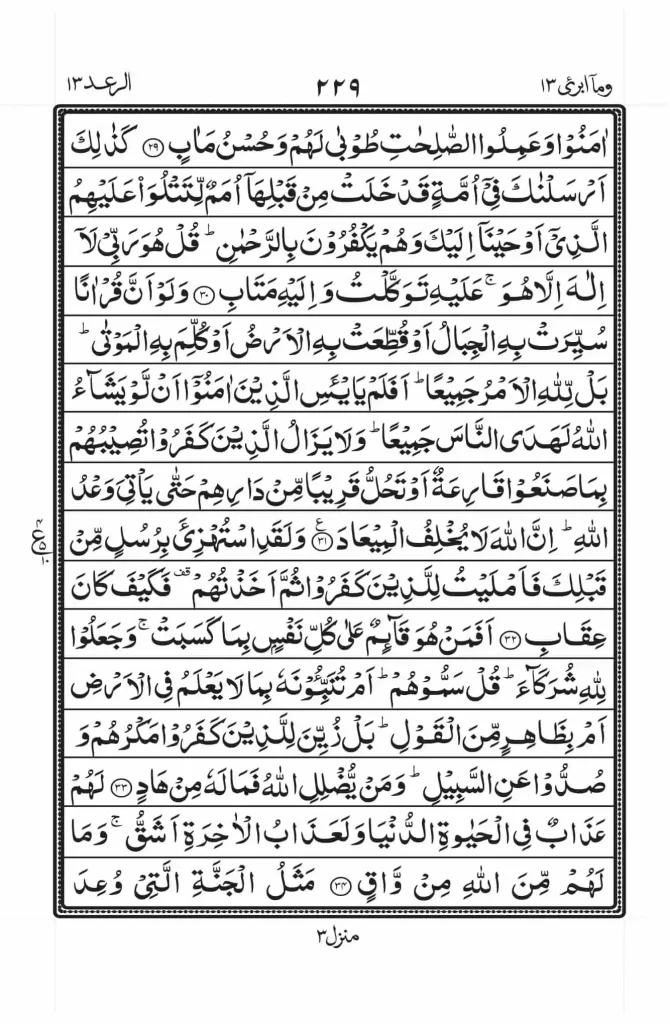 الرعد ١٣ ٢٢٩ ومآ ابرئ ١٣
اٰمَنُوۡا وَعَمِلُوا الصّٰلِحٰتِ طُوۡبٰى لَهُمۡ وَحُسۡنُ مَاٰبٍ ﴿۲۹﴾ كَذٰلِكَ
اَرۡسَلۡنٰكَ فِىۡۤ اُمَّةٍ قَدۡ خَلَتۡ مِنۡ قَبۡلِهَاۤ اُمَمٌ لِّتَتۡلُوَا۟ عَلَيۡهِمُ
الَّذِىۡۤ اَوۡحَيۡنَاۤ اِلَيۡكَ وَهُمۡ يَكۡفُرُوۡنَ بِالرَّحۡمٰنِ‌ؕ قُلۡ هُوَ رَبِّىۡ لَاۤ
اِلٰهَ اِلَّا هُوَ‌ۚ عَلَيۡهِ تَوَكَّلۡتُ وَاِلَيۡهِ مَتَابِ ﴿۳۰﴾ وَلَوۡ اَنَّ قُرۡاٰنًا
سُيِّرَتۡ بِهِ الۡجِبَالُ اَوۡ قُطِّعَتۡ بِهِ الۡاَرۡضُ اَوۡ كُلِّمَ بِهِ الۡمَوۡتٰى‌ؕ
بَلۡ لِّلّٰهِ الۡاَمۡرُ جَمِيۡعًا‌ؕ اَفَلَمۡ يَا۟يۡـَٔسِ الَّذِيۡنَ اٰمَنُوۡۤا اَنۡ لَّوۡ يَشَآءُ
اللّٰهُ لَهَدَى النَّاسَ جَمِيۡعًا‌ؕ وَلَا يَزَالُ الَّذِيۡنَ كَفَرُوۡا تُصِيۡبُهُمۡ
بِمَا صَنَعُوۡا قَارِعَةٌ اَوۡ تَحُلُّ قَرِيۡبًا مِّنۡ دَارِهِمۡ حَتّٰى يَاۡتِىَ وَعۡدُ
اللّٰهِ‌ؕ اِنَّ اللّٰهَ لَا يُخۡلِفُ الۡمِيۡعَادَ ﴿۳۱﴾ وَلَقَدِ اسۡتُهۡزِئَ بِرُسُلٍ مِّنۡ
قَبۡلِكَ فَاَمۡلَيۡتُ لِلَّذِيۡنَ كَفَرُوۡا ثُمَّ اَخَذۡتُهُمۡ فَكَيۡفَ كَانَ
عِقَابِ ﴿۳۲﴾ اَفَمَنۡ هُوَ قَآئِمٌ عَلٰى كُلِّ نَفۡسٍۢ بِمَا كَسَبَتۡ‌ۚ وَجَعَلُوۡا
لِلّٰهِ شُرَكَآءَ‌ؕ قُلۡ سَمُّوۡهُمۡ‌ؕ اَمۡ تُنَبِّـُٔوۡنَهٗ بِمَا لَا يَعۡلَمُ فِى الۡاَرۡضِ
اَمۡ بِظَاهِرٍ مِّنَ الۡقَوۡلِ‌ؕ بَلۡ زُيِّنَ لِلَّذِيۡنَ كَفَرُوۡا مَكۡرُهُمۡ وَ
صُدُّوۡا عَنِ السَّبِيۡلِ‌ؕ وَمَنۡ يُّضۡلِلِ اللّٰهُ فَمَا لَهٗ مِنۡ هَادٍ ﴿۳۳﴾ لَهُمۡ
عَذَابٌ فِى الۡحَيٰوةِ الدُّنۡيَا وَلَعَذَابُ الۡاٰخِرَةِ اَشَقُّ‌ۚ وَمَا
لَهُمۡ مِّنَ اللّٰهِ مِنۡ وَّاقٍ ﴿۳۴﴾ مَثَلُ الۡجَنَّةِ الَّتِىۡ وُعِدَ
منزل ٣